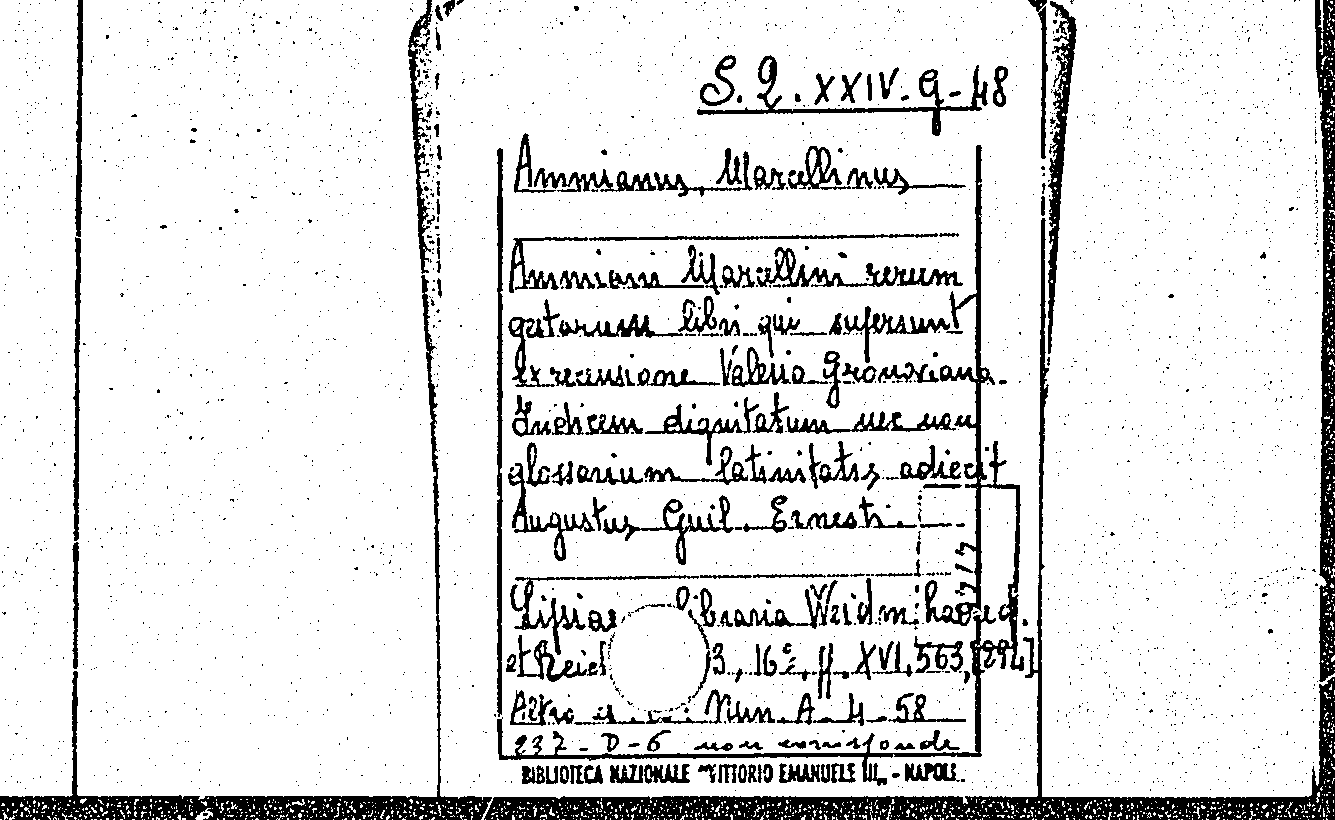 S. Q. XXIV. G-48
Ammianus, Marcellinus
Ammiani Marcellini rerum
gestarum libri qui supersunt
ex recensione Valesio Gronoviana.
Indicem dignitatum nec non
glossarium latinitatis adiecit
Augustus Guil. Ernesti.
Lipsiae libraria Weidm. haered.
et Reich 3, 16°, pp. XVI, 563, [294]
Altro Nun. A-4-58
237-D-6 non corrisponde
BIBLIOTECA NAZIONALE "VITTORIO EMANUELE III" - NAPOLI